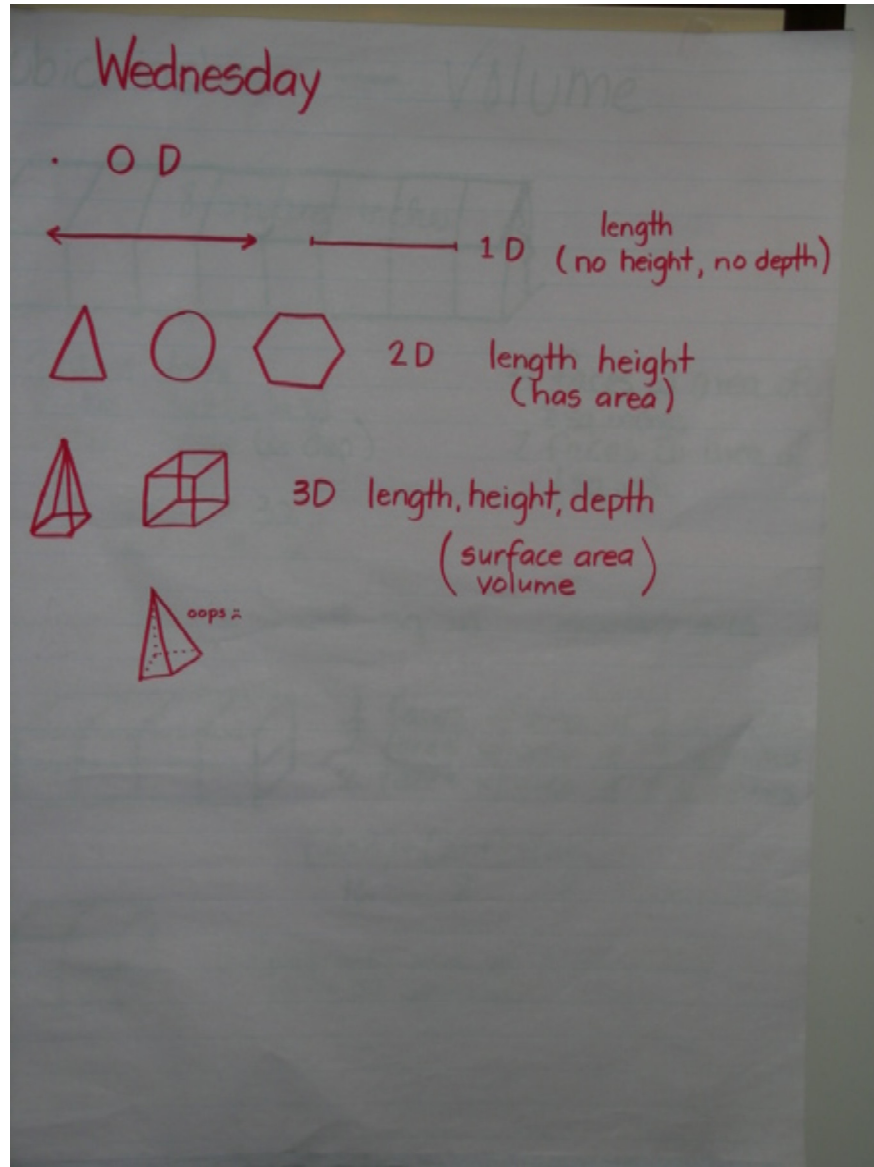 Wednesday
Volume
. 0 D
1 D length
(no height, no depth)
2D length height
(has area)
3D length, height, depth
(surface area
volume)
oops :